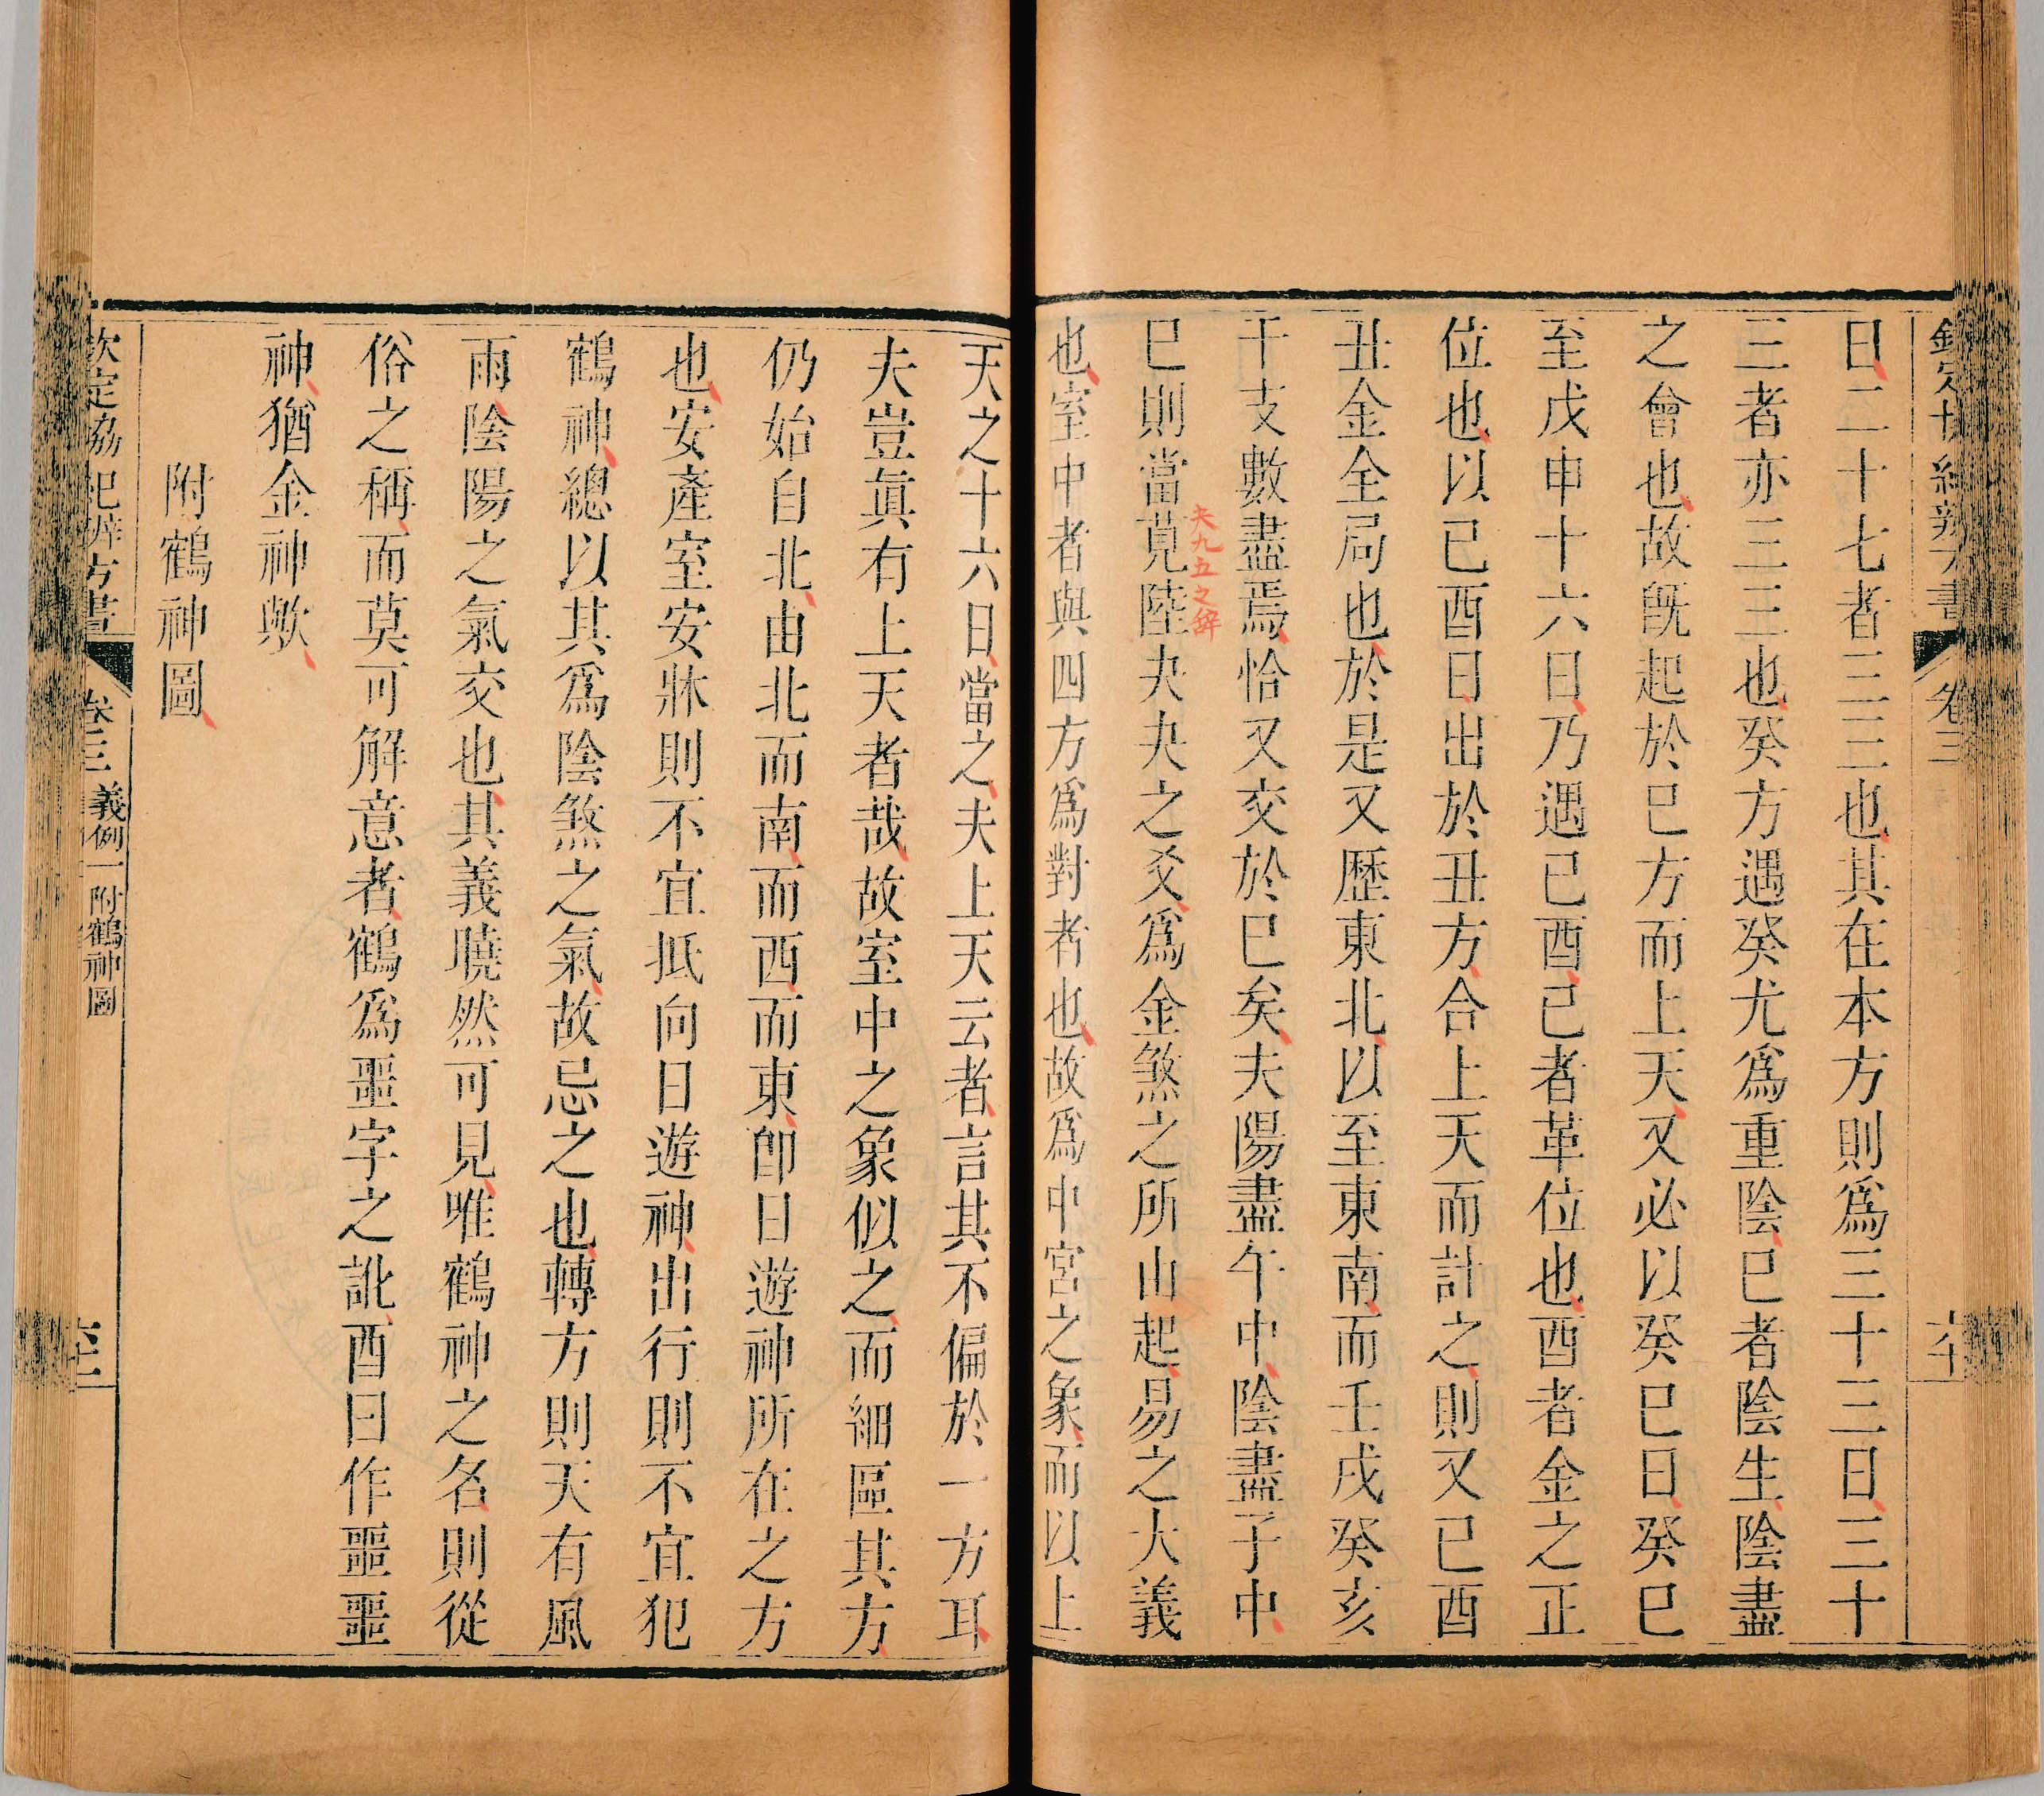 日二十七者三三也其在本方則爲三十三日三十
三者亦三三也癸方遇癸尤爲重陰巳者陰生陰盡
之會也故旣起於巳方而上天又必以癸巳日癸巳
至戊申十六日乃遇己酉己者革位也酉者金之正
位也以己酉日出於丑方合上天而計之則又己酉
丑金全局也於是又歷東北以至東南而壬戌癸亥
干支數盡焉恰又交於巳矣夫陽盡午中陰盡子中
夬九五之辭
巳則當莧陸夬夬之爻爲金煞之所由起易之大義
也室中者與四方爲對者也故爲中宮之象而以上
天之十六日當之夫上天云者言其不偏於一方耳
夫豈眞有上天者哉故室中之象似之而細區其方
仍始自北由北而南而西而東卽日遊神所在之方
也安產室安牀則不宜抵向日遊神出行則不宜犯
鶴神總以其爲陰煞之氣故忌之也轉方則天有風
雨陰陽之氣交也其義曉然可見唯鶴神之名則從
俗之稱而莫可解意者鶴爲噩字之訛酉曰作噩噩
神猶金神歟
附鶴神圖
欽定協紀辨方書 卷三 義例一 附鶴神圖